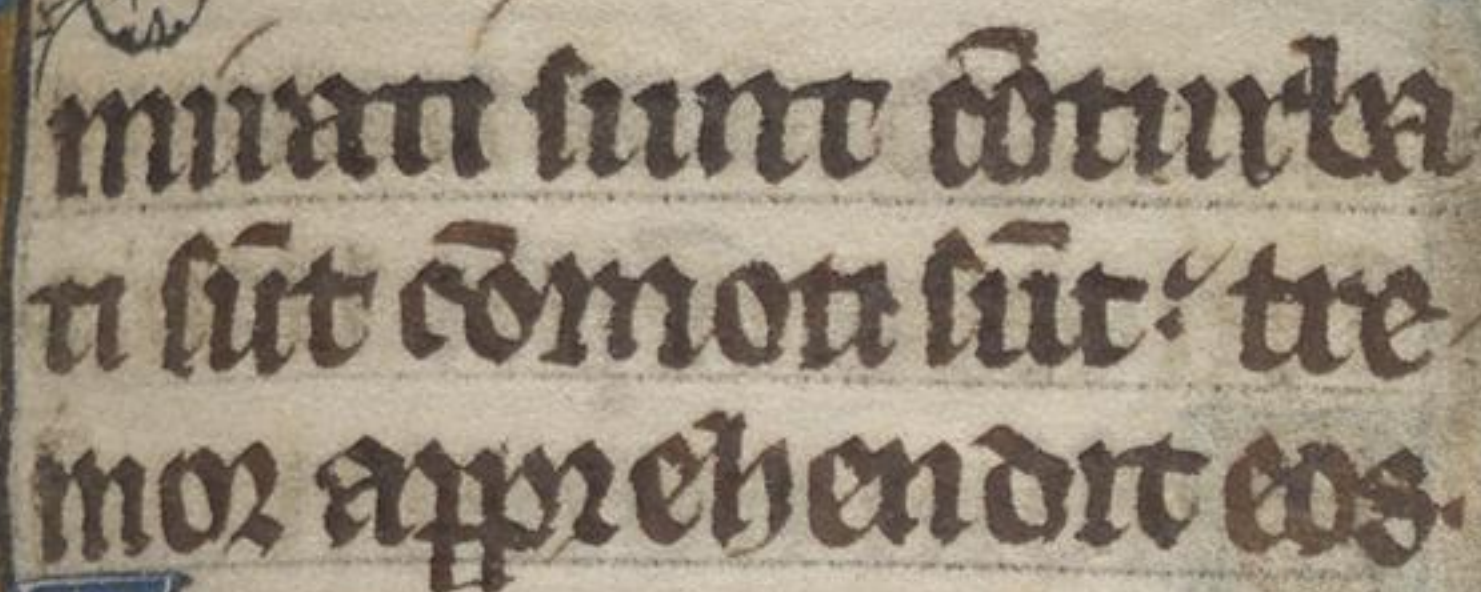 mirati sunt cōturba
ti sūt cōmoti sūt: tre
mor apprehendit eos.